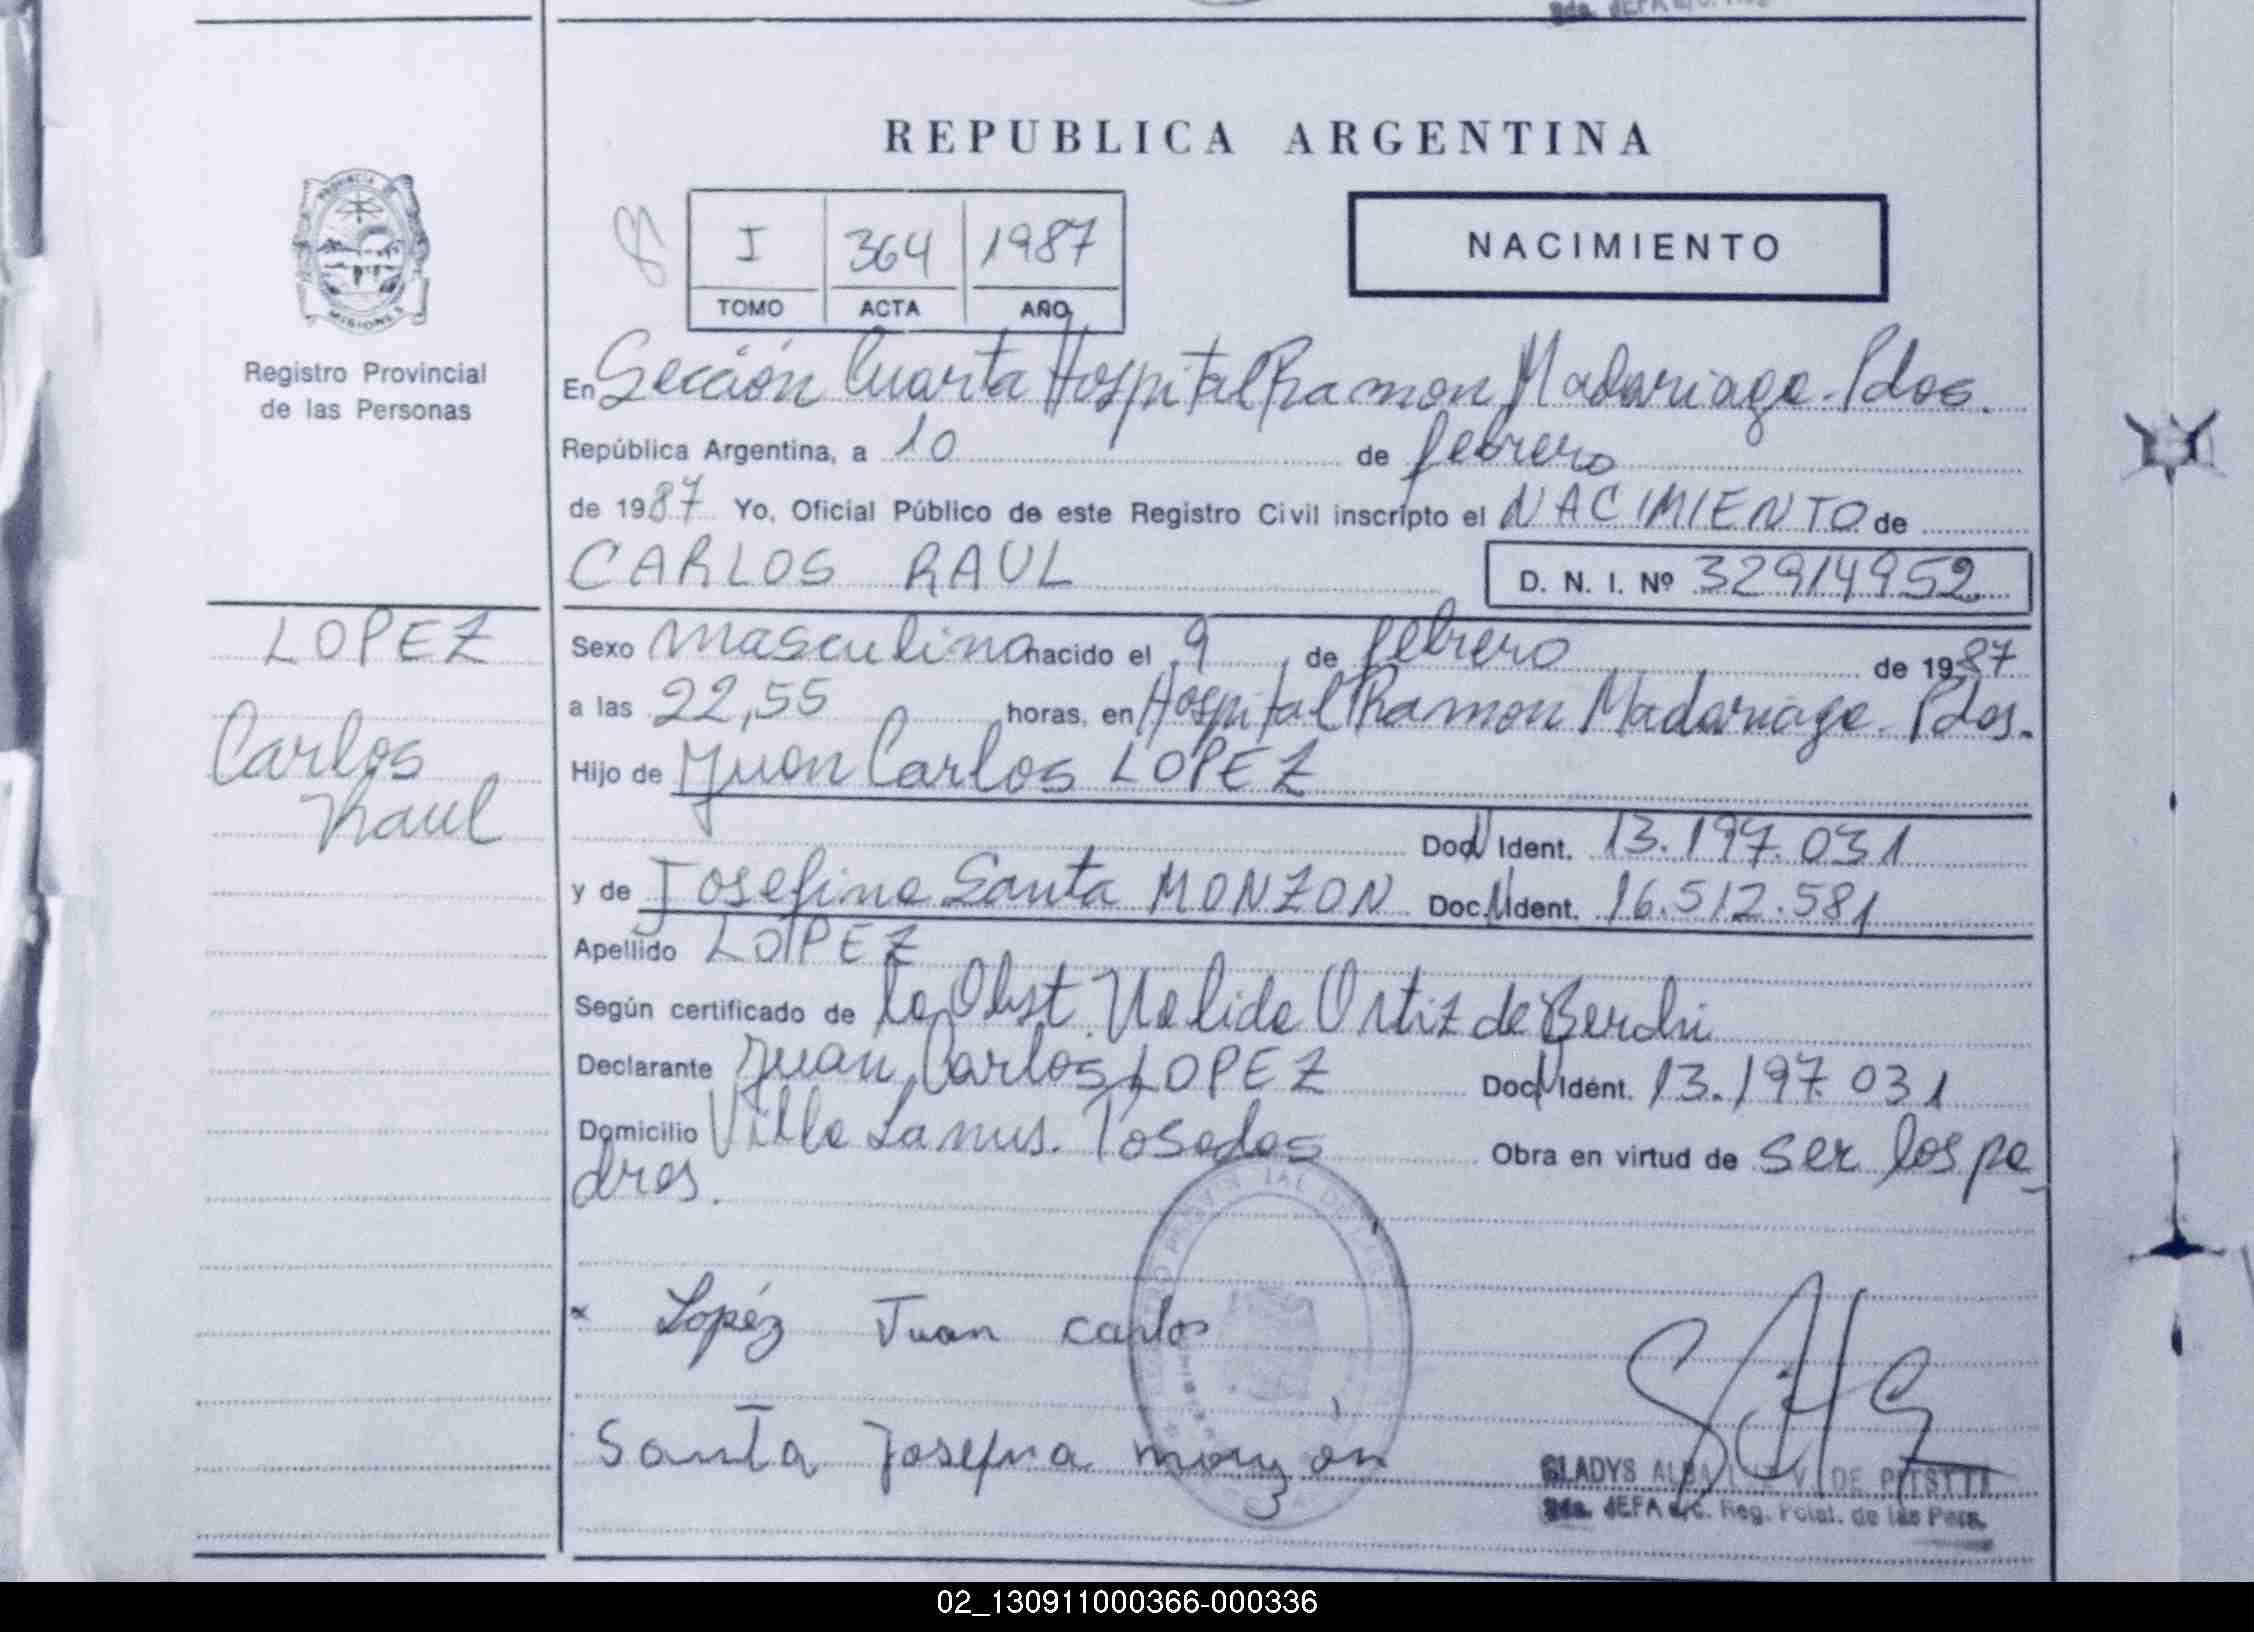 REPUBLICA ARGENTINA
PROVINCIA DE
MISIONES
Registro Provincial
de las Personas
I 364 1987
TOMO ACTA AÑO
NACIMIENTO
En Sección Cuarta Hospital Ramon Madariaga. Pdas.
República Argentina, a 10 de febrero
de 1987 Yo, Oficial Público de este Registro Civil inscripto el NACIMIENTO de
CARLOS RAUL D. N. I. Nº 32914952
LOPEZ
Carlos
Raul
Sexo masculino nacido el 9 de febrero de 1987
a las 22,55 horas, en Hospital Ramon Madariaga. Pdas.
Hijo de Juan Carlos LOPEZ
Doc. N Ident. 13.197.031
y de Josefina Santa MONZON Doc. N Ident. 16.512.581
Apellido LOPEZ
Según certificado de la Obst. Ortiz de
Declarante Juan Carlos LOPEZ Doc. N Ident. 13.197.031
Domicilio Villa Lanus. Posadas Obra en virtud de ser los pa-
dres.
Lopéz Juan Carlos
Santa Josefina monzon
GLADYS ALBA V. DE
2da. JEFA a/c. Reg. Pcial. de las Pers.
02_130911000366-000336